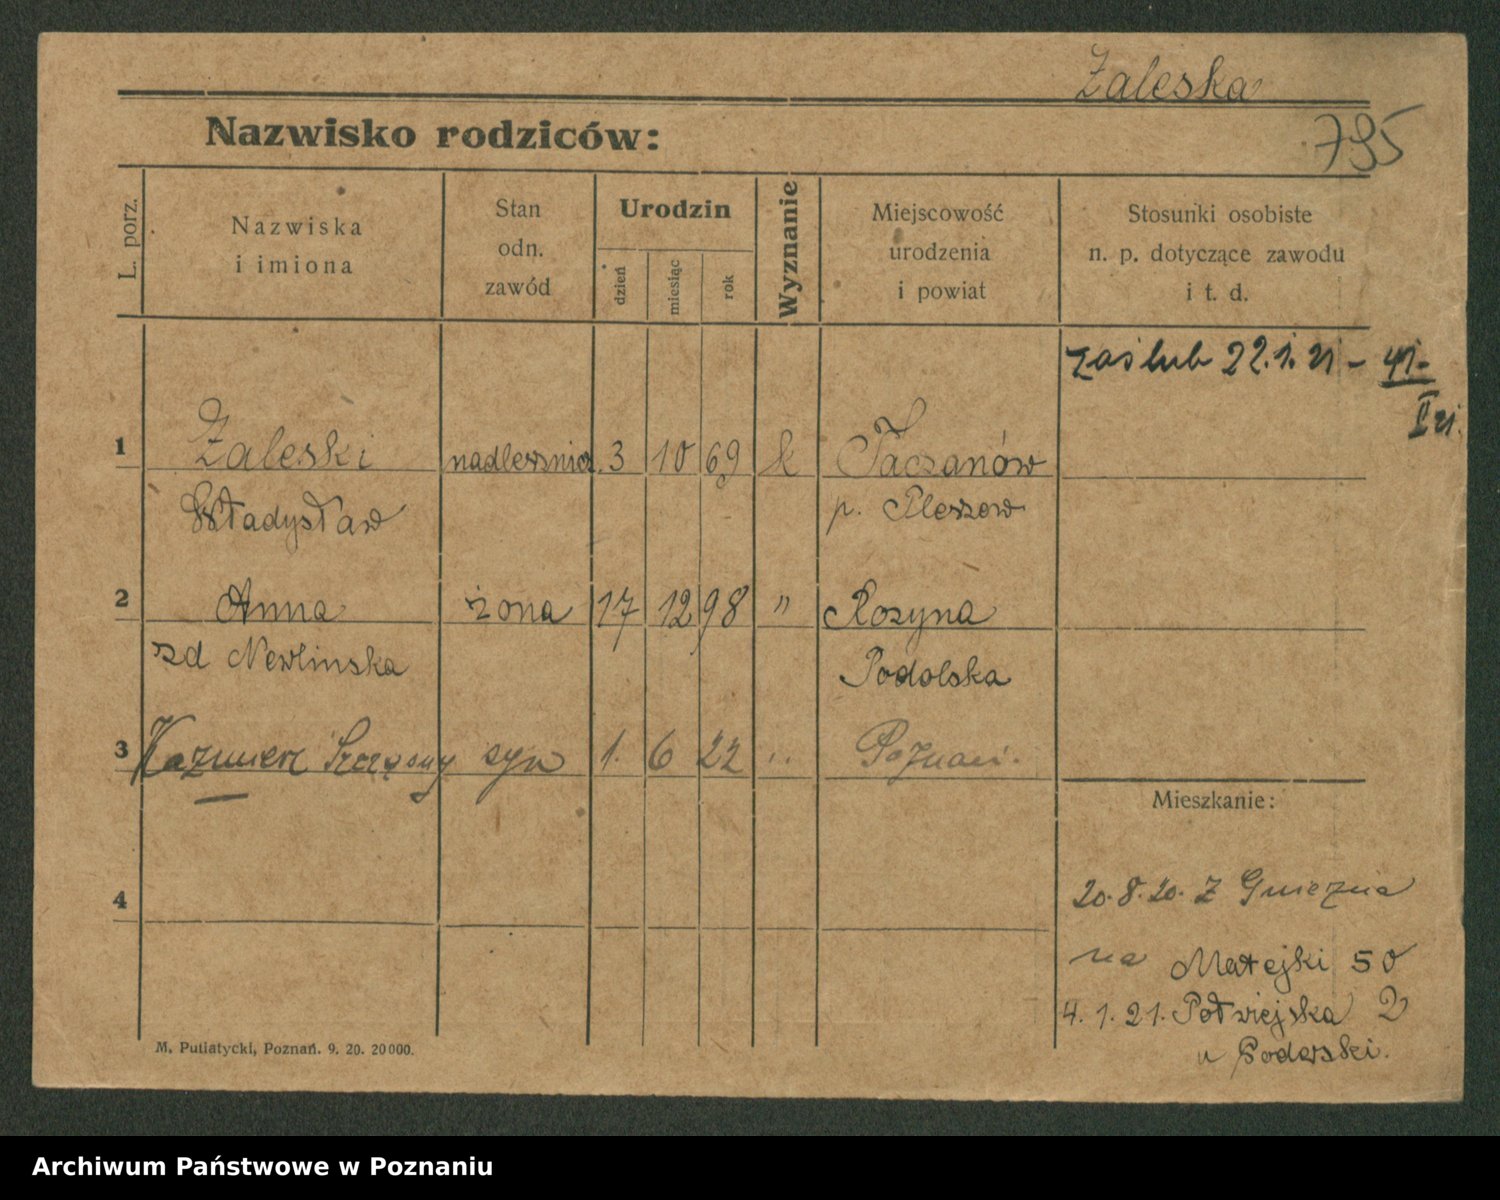 Zaleska
Nazwisko rodziców:
795
L. porz.
Nazwiska
i imiona
Stan
odn.
zawód
Urodzin
dzień
miesiąc
rok
Wyznanie
Miejscowość
urodzenia
i powiat
Stosunki osobiste
n. p. dotyczące zawodu
i t. d.
zaślub 22.1.21 - 41-
II 21.
1 Zaleski nadleśnicz. 3 10 69 k Taczanów
Władysław p. Pleszew
2 Anna żona 17 12 98 " Rozyna
zd Newlinska Podolska
3 Kazimierz Szczęsny syn 1. 6 22 " Poznań.
Mieszkanie:
4
20.8.20. z Gniezna
na Matejki 50
4.1.21. Półwiejska 2
u
M. Putiatycki, Poznań. 9. 20. 20000.
Archiwum Państwowe w Poznaniu